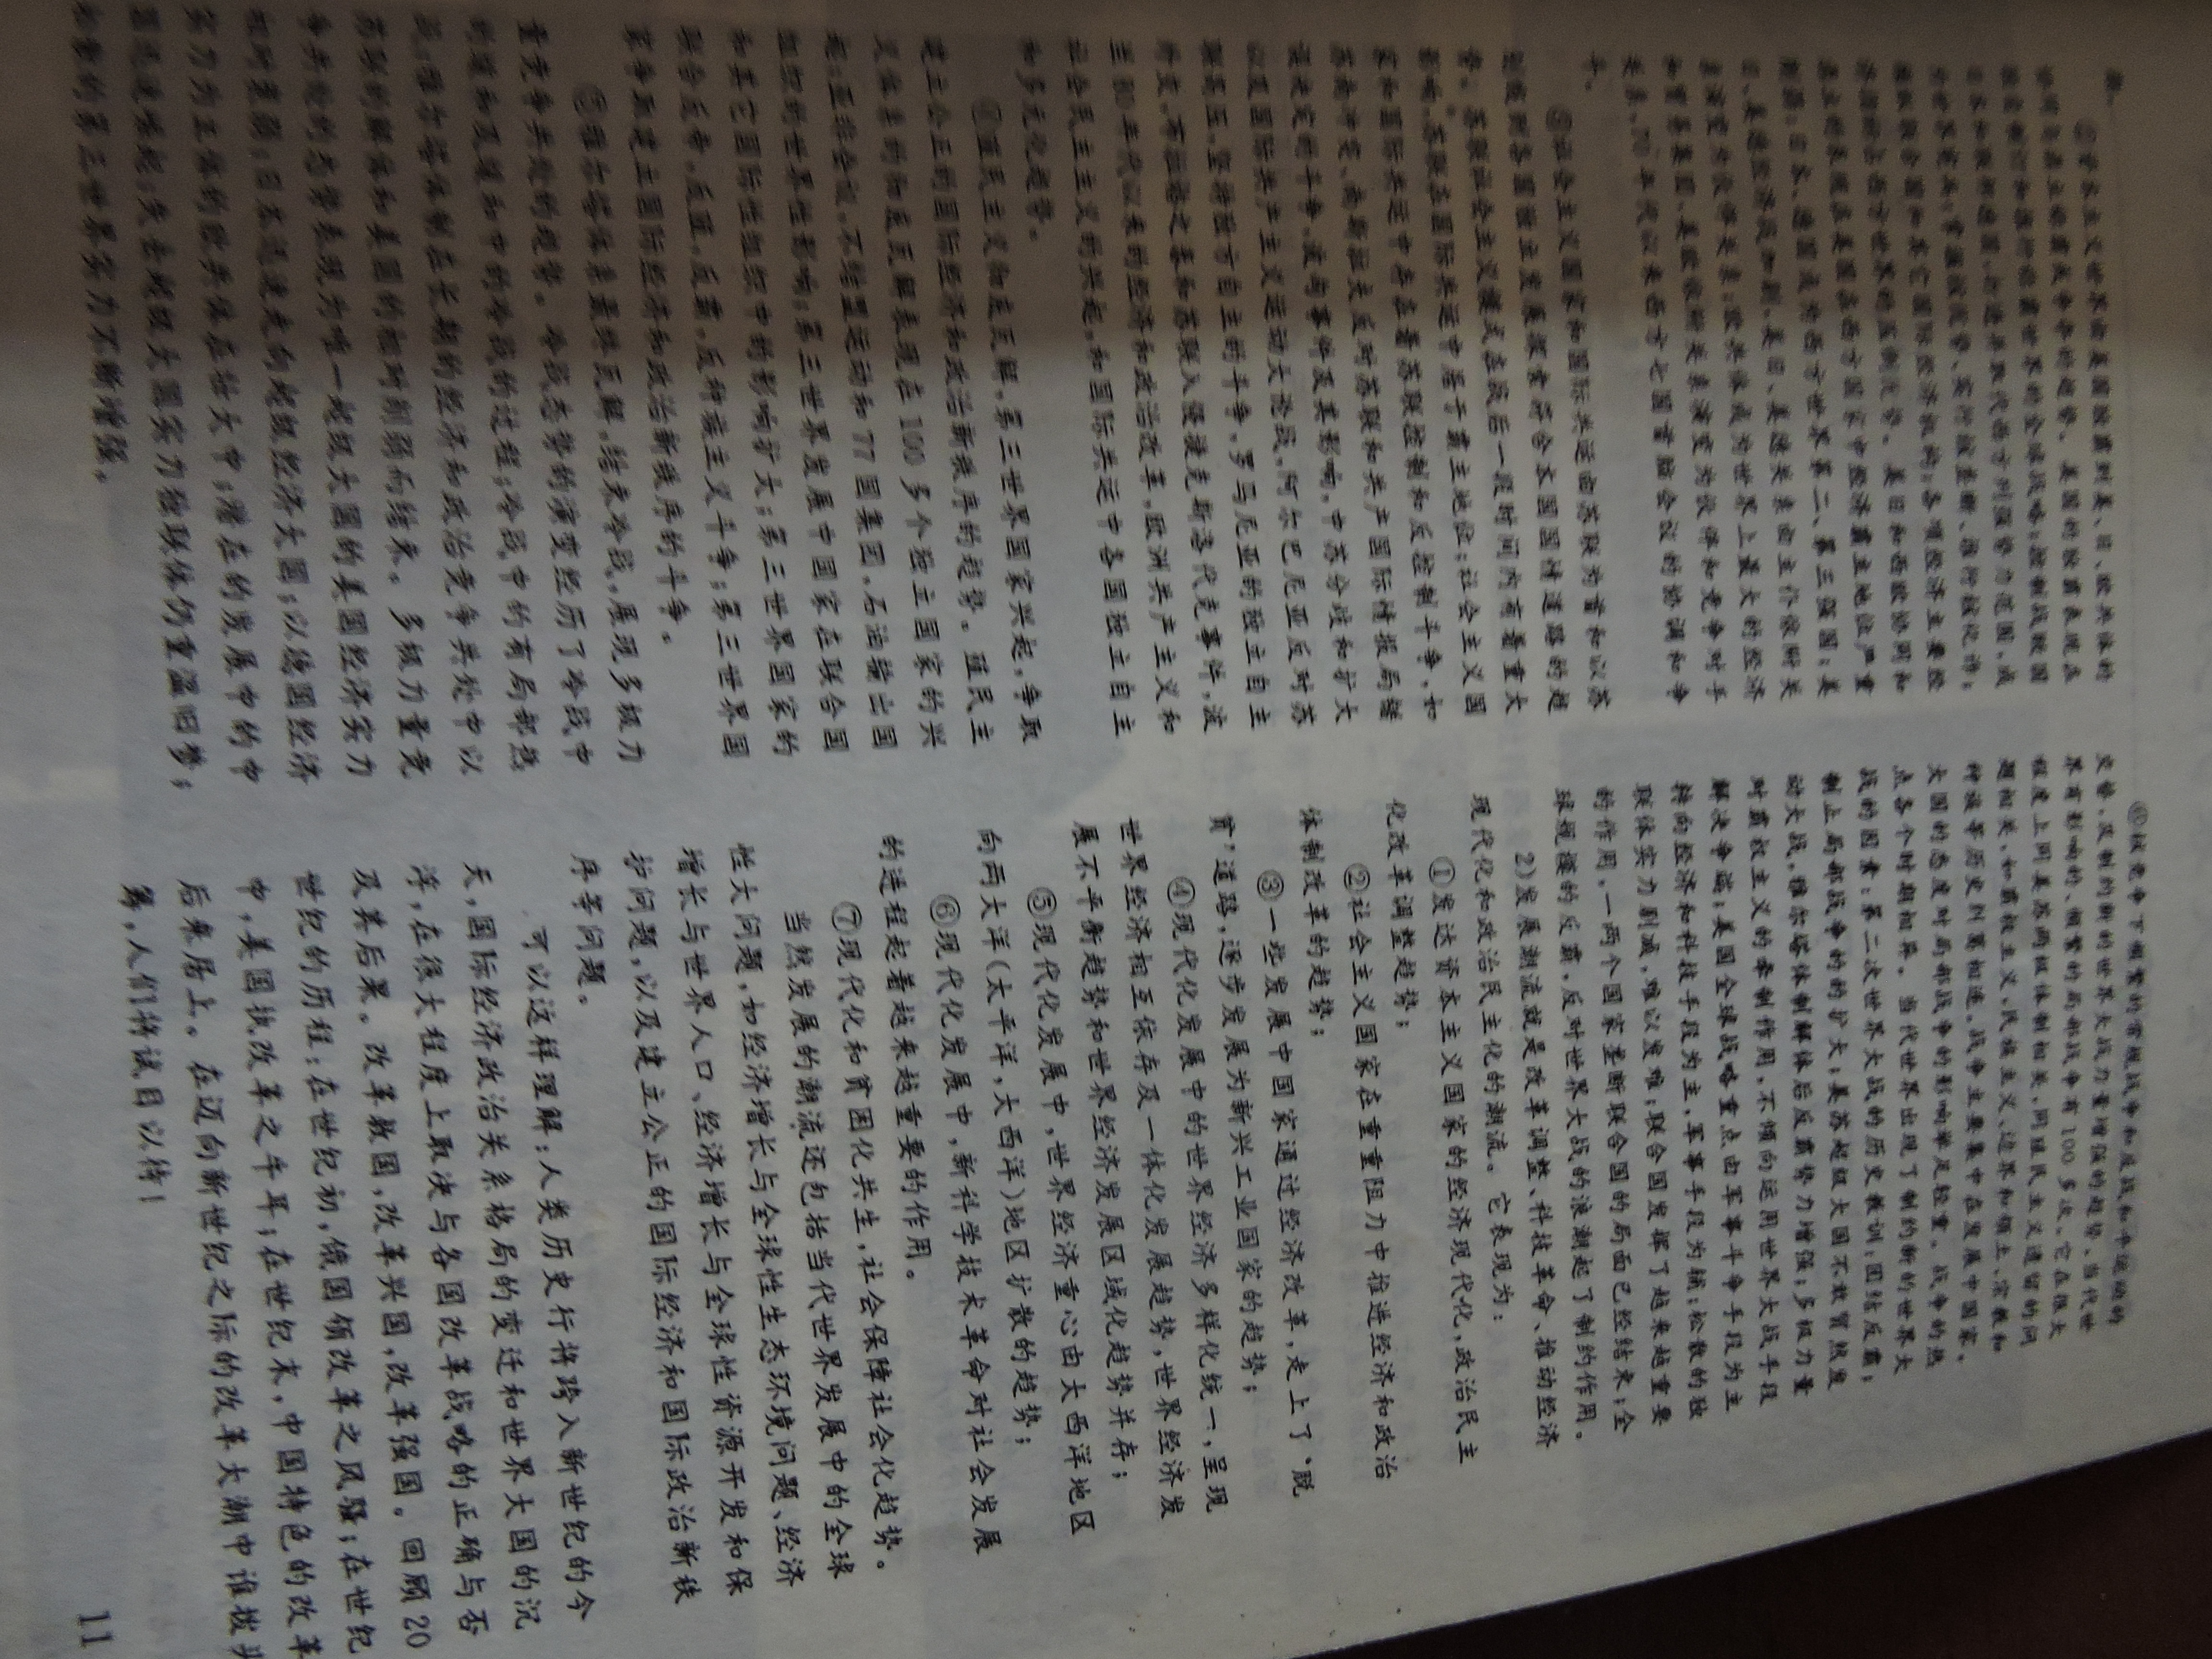 ②资本主义世界由美国独霸到美、日、欧共体的
协同与鼎立称霸或争夺的趋势。美国的独霸表现在
独自制订和推行称霸世界的全球战略；控制战败国
日本和联邦德国，打进并取代西方列强势力范围，成
为世界宪兵；掌握核优势、实行核垄断、推行核讹诈；
操纵联合国和其它国际经济机构；各项经济主要经
济指标占西方世界的压倒优势。美日和西欧协同和
鼎立的表现在美国在西方国家中经济霸主地位严重
削弱；日本、德国成为西方世界第二、第三强国；美
日、美德经济战加剧，美日、美德关系由主仆依附关
系演变为伙伴关系；欧共体成为世界上最大的经济
和贸易集团、美欧依附关系演变为伙伴和竞争对手
关系，70年代以来西方七国首脑会议的协调和争
斗。
③社会主义国家和国际共运由苏联为首和以苏
划线到各国独立发展探索符合本国国情道路的趋
势。苏联社会主义模式在战后一段时间内有着重大
影响，苏联在国际共运中居于霸主地位；社会主义国
家和国际共运中存在着苏联控制和反控制斗争，如
苏南冲突、南斯拉夫反对苏联和共产国际情报局错
误决定的斗争，波匈事件及其影响，中苏分歧和扩大
以及国际共产主义运动大论战，阿尔巴尼亚反对苏
联高压，坚持独方自主的斗争，罗马尼亚的独立自主
外交，布拉格之春和苏联入侵捷克斯洛伐克事件，波
至80年代以来的经济和政治改革，欧洲共产主义和
社会民主主义的兴起，和国际共运中各国独立自主
和多元化趋势。
④殖民主义彻底瓦解，第三世界国家兴起，争取
建立公正的国际经济和政治新秩序的趋势。殖民主
义体系的彻底瓦解表现在100多个独立国家的兴
起；亚非会议，不结盟运动和77国集团，石油输出国
组织的世界性影响；第三世界发展中国家在联合国
和其它国际性组织中的影响扩大；第三世界国家的
联合反帝，反殖，反霸，反种族主义斗争；第三世界国
家争取建立国际经济和政治新秩序的斗争。
⑤雅尔塔体系最终瓦解，结束冷战，展现多极力
量竞争共处的趋势。冷战态势的演变经历了冷战中
的缓和及缓和中的冷战的过程；冷战中的有局部热
战；雅尔塔体制在长期的经济和政治竞争共处中以
苏联的解体和美国的相对削弱而结束。多极力量竞
争共处的态势表现为唯一超级大国的美国经济实力
相对衰弱；日本迅速走向超级经济大国；以德国经济
实力为主体的欧共体在壮大中；潜在的发展中的中
国迅速崛起；失去超级大国实力独联体仍重温旧梦；
的第三世界实力不断增强。
⑥核竞争下频繁的常规战争和反战和平运动的
交替，及制约新的世界大战力量增强的趋势。当代世
界有影响的、频繁的局部战争有100多次。它在很大
程度上同美苏两极体制相关，同殖民主义遗留的问
题相关，如霸权主义，民族主义、边界和领土、宗教和
种族等历史纠葛相连。战争主要集中在发展中国家。
大国的态度对局部战争的影响举足轻重。战争的热
点各个时期相异。当代世界出现了制约新的世界大
战的因素：第二次世界大战的历史教训；团结反霸；
制止局部战争的的扩大；美苏超级大国不敢贸然发
动大战，雅尔塔体制解体后反霸势力增强；多极力量
对霸权主义的牵制作用，不倾向运用世界大战手段
解决争端；美国全球战略重点由军事斗争手段为主
转向经济和科技手段为主，军事手段为辅；松散的独
联体实力剧减，难以发难；联合国发挥了越来越重要
的作用，一两个国家垄断联合国的局面已经结束；全
球规模的反霸，反对世界大战的浪潮起了制约作用。
2)发展潮流就是改革调整、科技革命、推动经济
现代化和政治民主化的潮流。它表现为：
①发达资本主义国家的经济现代化，政治民主
化改革调整趋势；
②社会主义国家在重重阻力中推进经济和政治
体制改革的趋势；
③一些发展中国家通过经济改革，走上了“脱
贫”道路，逐步发展为新兴工业国家的趋势；
④现代化发展中的世界经济多样化统一，呈现
世界经济相互依存及一体化发展趋势，世界经济发
展不平衡趋势和世界经济发展区域化趋势并存；
⑤现代化发展中，世界经济重心由大西洋地区
向两大洋(太平洋，大西洋)地区扩散的趋势；
⑥现代化发展中，新科学技术革命对社会发展
的进程起着越来越重要的作用。
⑦现代化和贫困化共生，社会保障社会化趋势。
当然发展的潮流还包括当代世界发展中的全球
性大问题，如经济增长与全球性生态环境问题、经济
增长与世界人口、经济增长与全球性资源开发和保
护问题，以及建立公正的国际经济和国际政治新秩
序等问题。
可以这样理解：人类历史行将跨入新世纪的今
天，国际经济政治关系格局的变迁和世界大国的沉
浮，在很大程度上取决与各国改革战略的正确与否
及其后果。改革救国，改革兴国，改革强国。回顾20
世纪的历程：在世纪初，俄国领改革之风骚；在世纪
中，美国执改革之牛耳；在世纪末，中国特色的改革
后来居上。在迈向新世纪之际的改革大潮中谁拔头
筹，人们将试目以待！
11